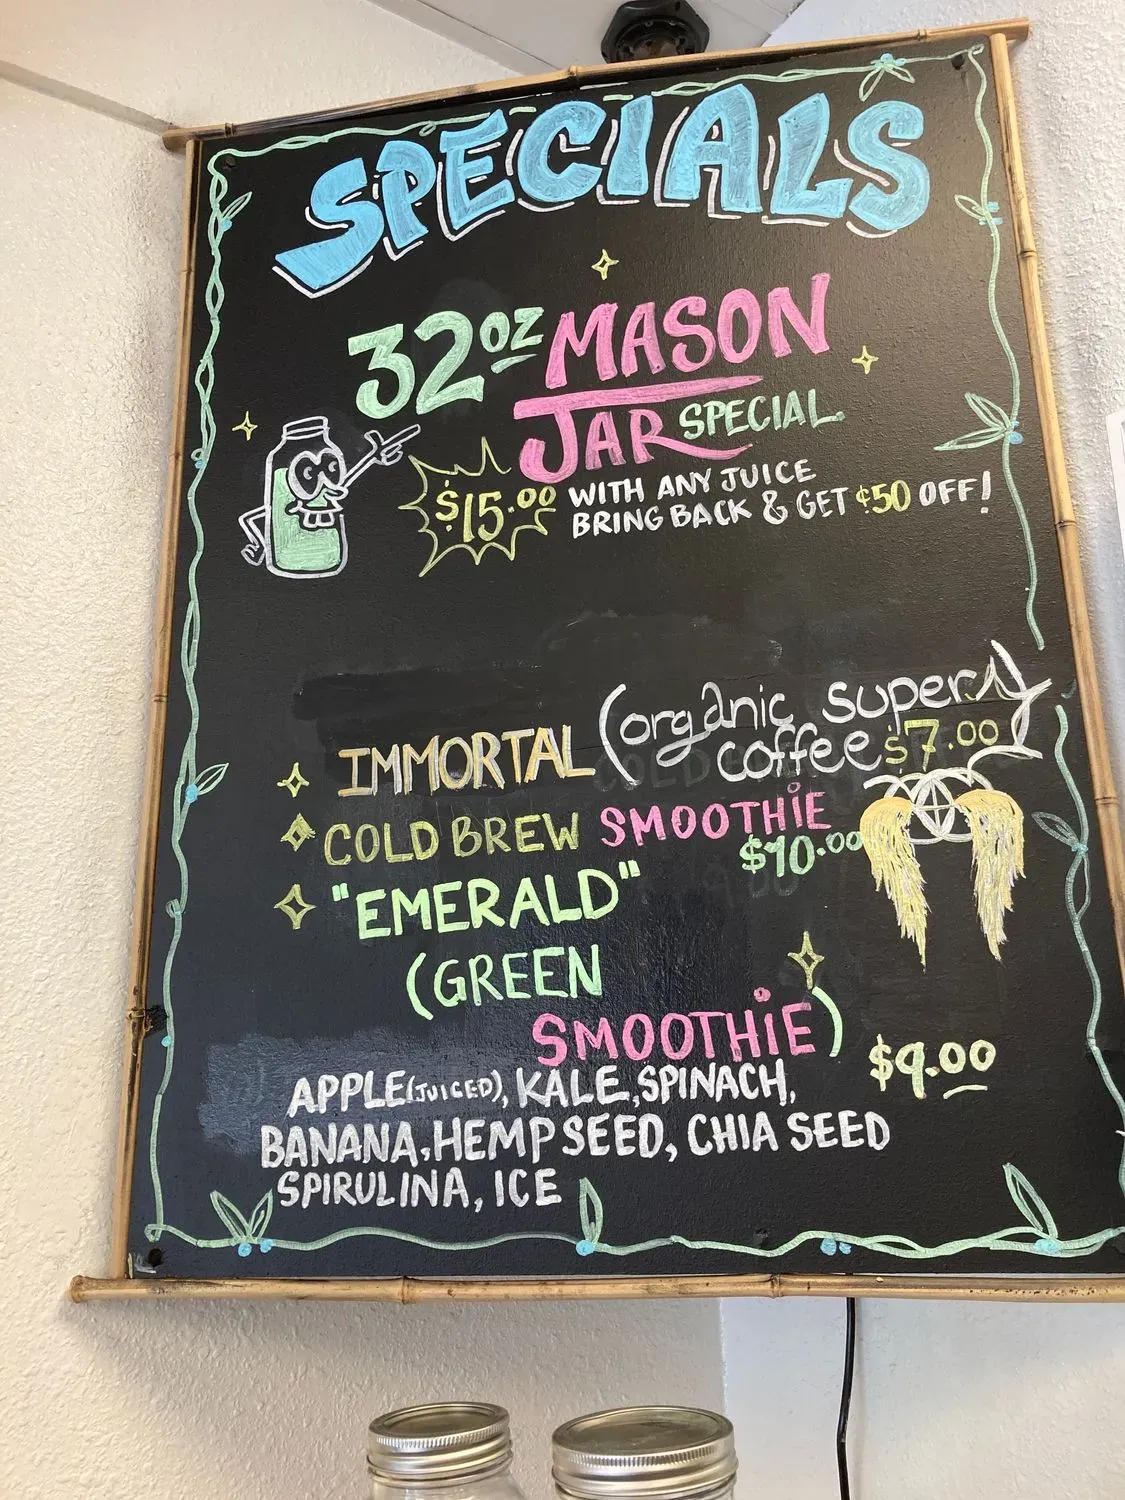 SPECIALS
32oz MASON
JAR SPECIAL
$15.00 WITH ANY JUICE
BRING BACK & GET ¢50 OFF!
IMMORTAL (organic super
coffee $7.00
COLD BREW SMOOTHiE
$10.00
"EMERALD"
(GREEN
SMOOTHiE)
$9.00
APPLE(JUICED), KALE, SPINACH,
BANANA, HEMP SEED, CHIA SEED
SPIRULINA, ICE